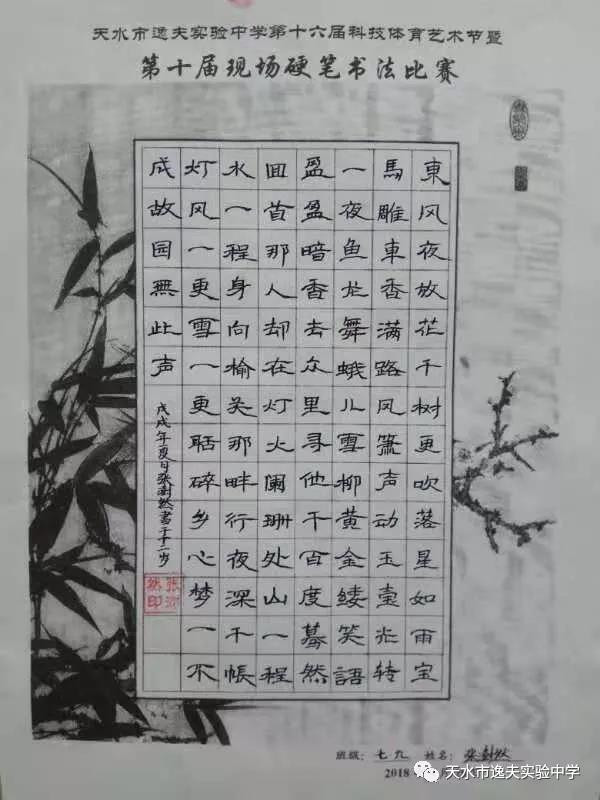 天水市逸夫实验中学第十六届科技体育艺术节暨
第十届现场硬笔书法比赛
東风夜放花千树更吹落星如雨宝
馬雕車香满路风箫声动玉壶光转
一夜鱼龙舞蛾儿雪柳黄金缕笑語
盈盈暗香去众里寻他千百度蓦然
回首那人却在灯火阑珊处山一程
水一程身向榆关那畔行夜深千帳
灯风一更雪一更聒碎乡心梦一不
成故园無此声
戊戌年夏日张澍然書于十二岁
张澍然印
班级：七九 姓名：张澍然
2018
天水市逸夫实验中学